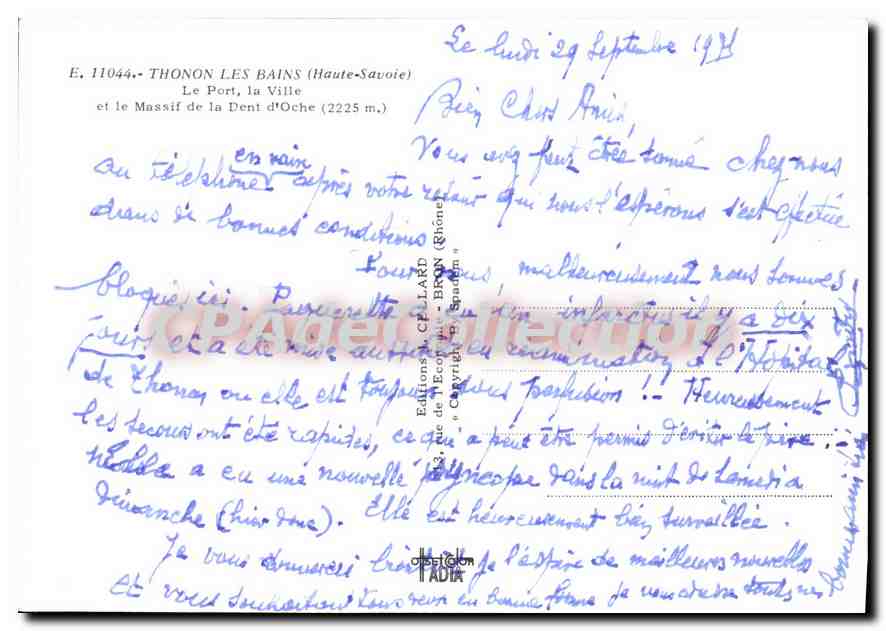 E. 11044.- THONON LES BAINS (Haute-Savoie)
Le Port, la Ville
et le Massif de la Dent d'Oche (2225 m.)
Le lundi 29 Septembre 1971
Bien Chers Amis,
Vous avez peut être sonné chez nous
au téléphone en vain après votre retour qui nous l'espérons s'est effectué
dans de bonnes conditions.
Pour nous, malheureusement nous sommes
bloqués ici. a eu un infarctus il y a dix
jours et a été mise aussitôt en réanimation à l'Hôpital
de Thonon ou elle est toujours sous perfusion !! Heureusement
les secours ont été rapides, ce qui a peut être permis d'éviter le pire.
Elle a eu une nouvelle syncope dans la nuit de Samedi à
dimanche (hier donc). Elle est heureusement bien surveillée.
Je vous donnerai bientôt je l'espère de meilleures nouvelles
et vous souhaitant tous deux en bonne forme je vous adresse toutes nos
Editions L. CELLARD
43, rue de l'Economie - BRON (Rhône)
« Copyright By Spadem »
OFFSET COLOR
IADIA
CPADeCollection